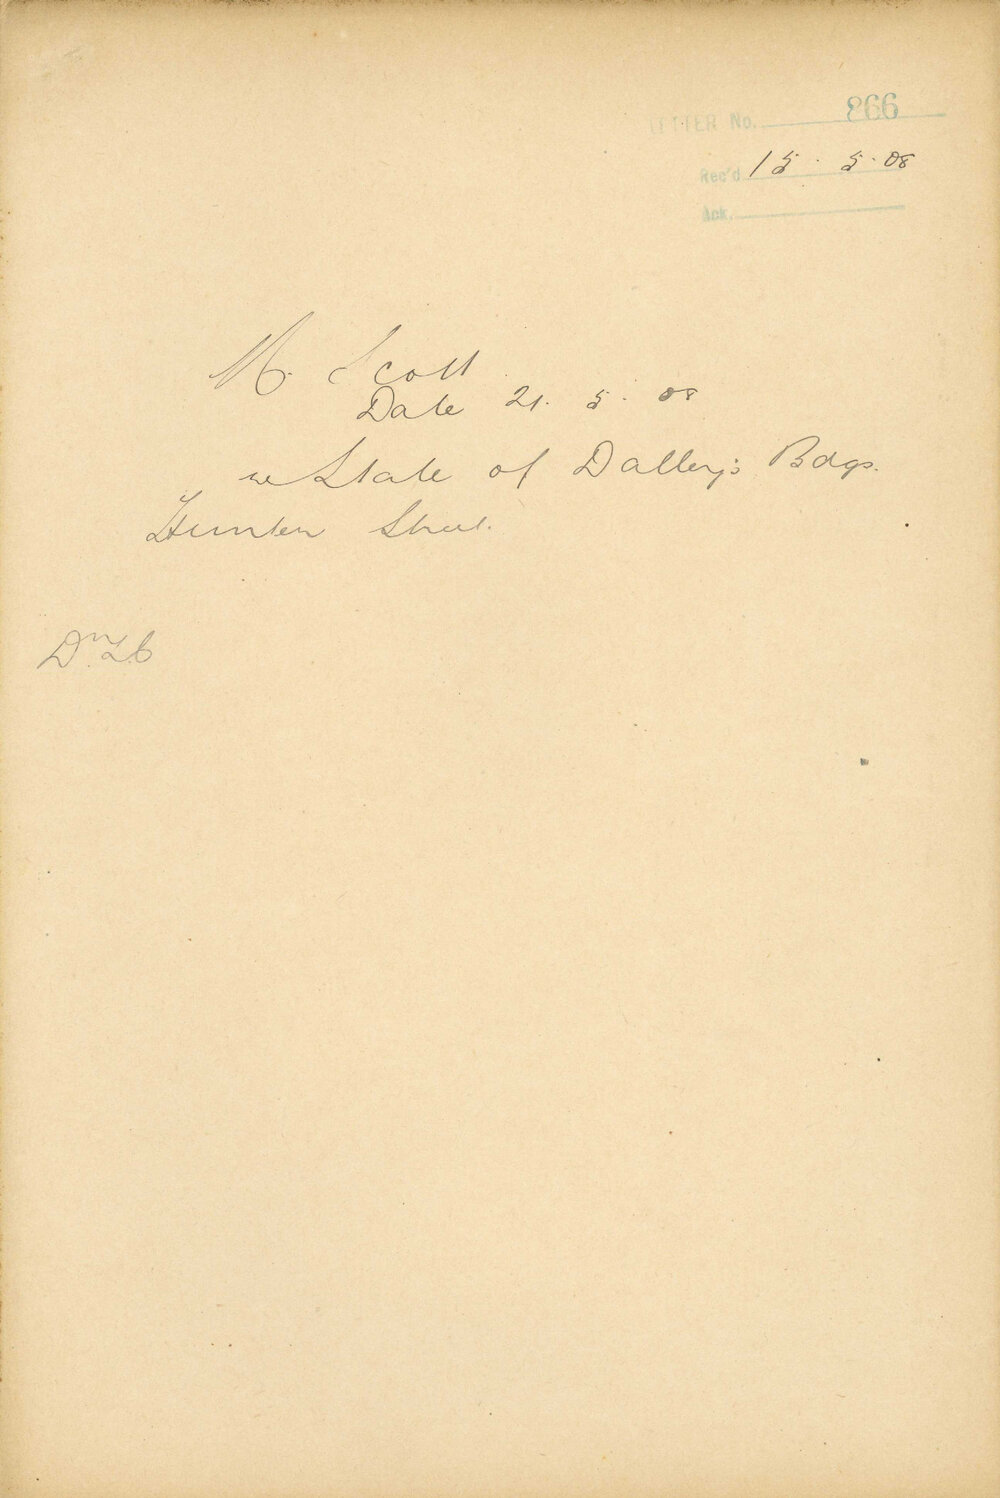 LETTER No. 993
Rec'd 15. 5. 08
Ack.
Mr. Scott
Date 21. 5. 08
re State of Dalley's Bdgs.
Hunter Street.